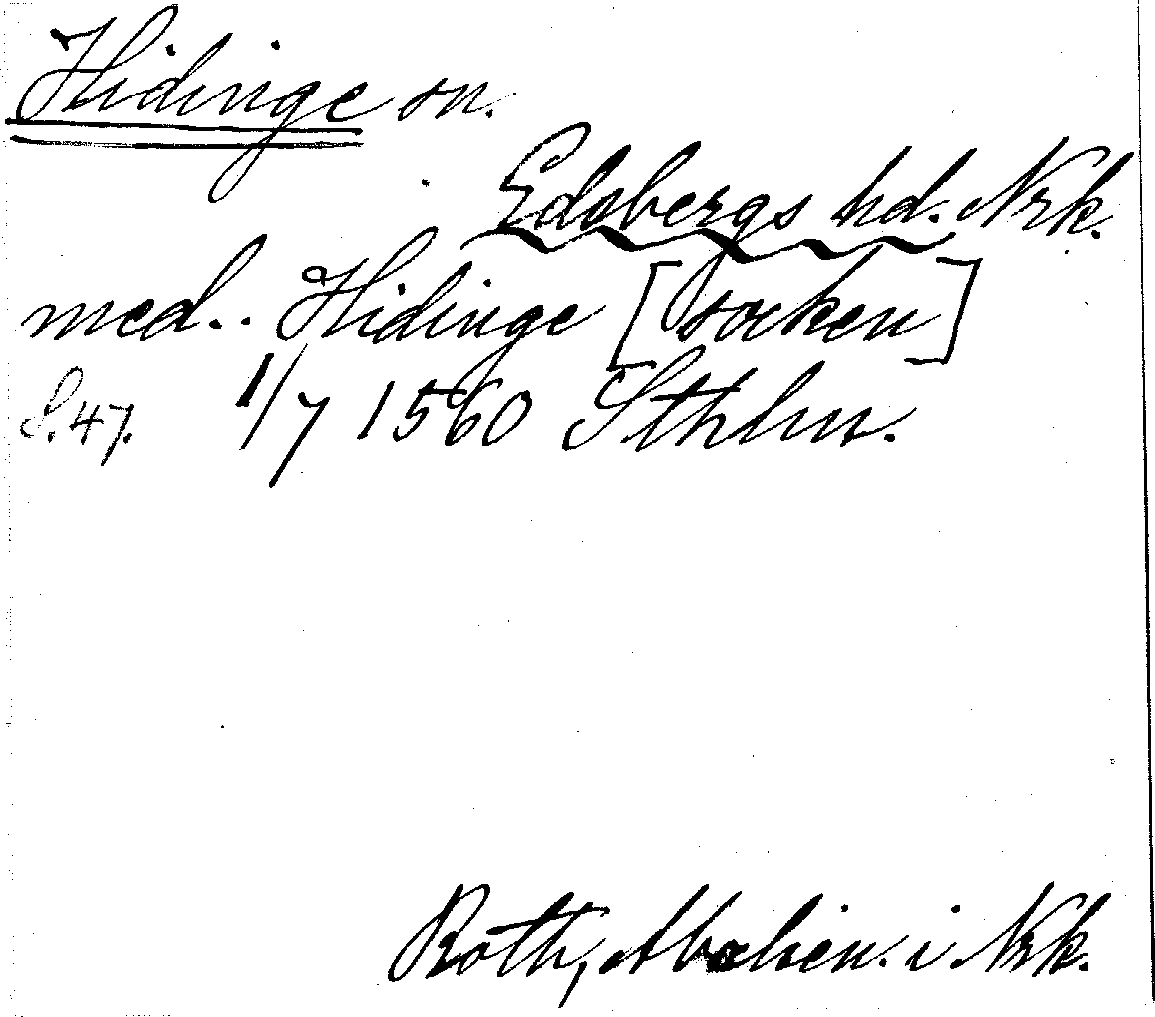 Hidinge sn.
Edsbergs hd. Nrk.
med.. Hidinge [socken]
S. 47. 1/7 1560 Sthlm.
Roth, i Nrk.